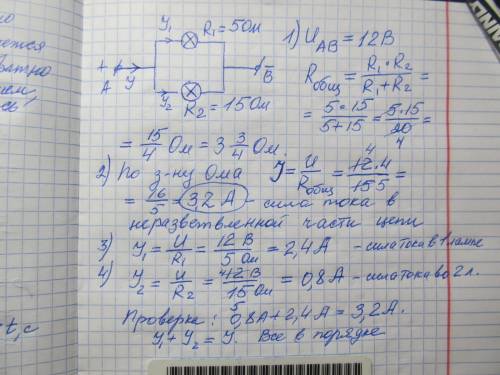 У₁ R₁ = 5Ом
+ А У B
У₂ R₂ = 15Ом
1) U_AB = 12В
R_общ = R₁·R₂ / R₁+R₂ =
= 5·15 / 5+15 = 5·15 / 20 4 =
= 15/4 Ом = 3 3/4 Ом.
2) По з-ну Ома У = U / R_общ = 12·4 / 15 5 =
4
= 16/5 = 3,2 А - сила тока в
неразветвленной части цепи
3) У₁ = U/R₁ = 12 В / 5 Ом = 2,4 А - сила тока в 1 лампе
4) У₂ = U/R₂ = 12 В / 15 Ом = 0,8 А - сила тока во 2 л.
5
Проверка: 0,8А + 2,4А = 3,2А.
У₁ + У₂ = У. Все в порядке
t, c